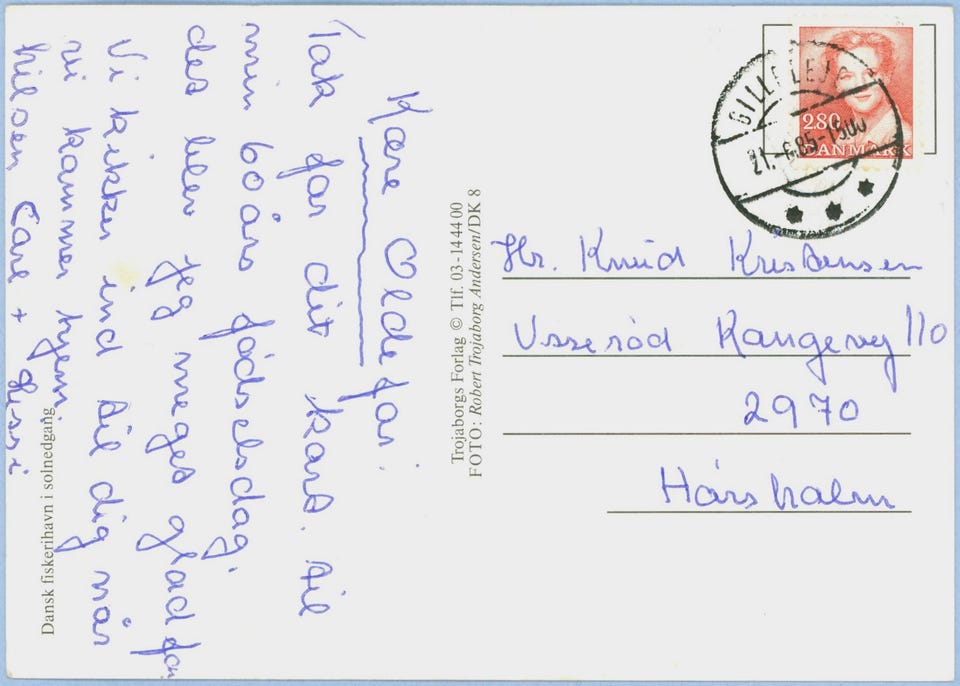 Kære Oldefar!
Tak for dit kort. til
min 60 års fødselsdag,
det blev jeg meget glad for
Vi kikker ind til dig når
vi kommer hjem.
hilsen Care +
Dansk fiskerihavn i solnedgang
Trojaborgs Forlag © Tlf. 03-14 44 00
FOTO: Robert Trojaborg Andersen/DK 8
GILLELEJE
21.-6.85-1500
2.80
DANMARK
Hr. Knud Kristensen
Usserød Kongevej 110
2970
Hørsholm